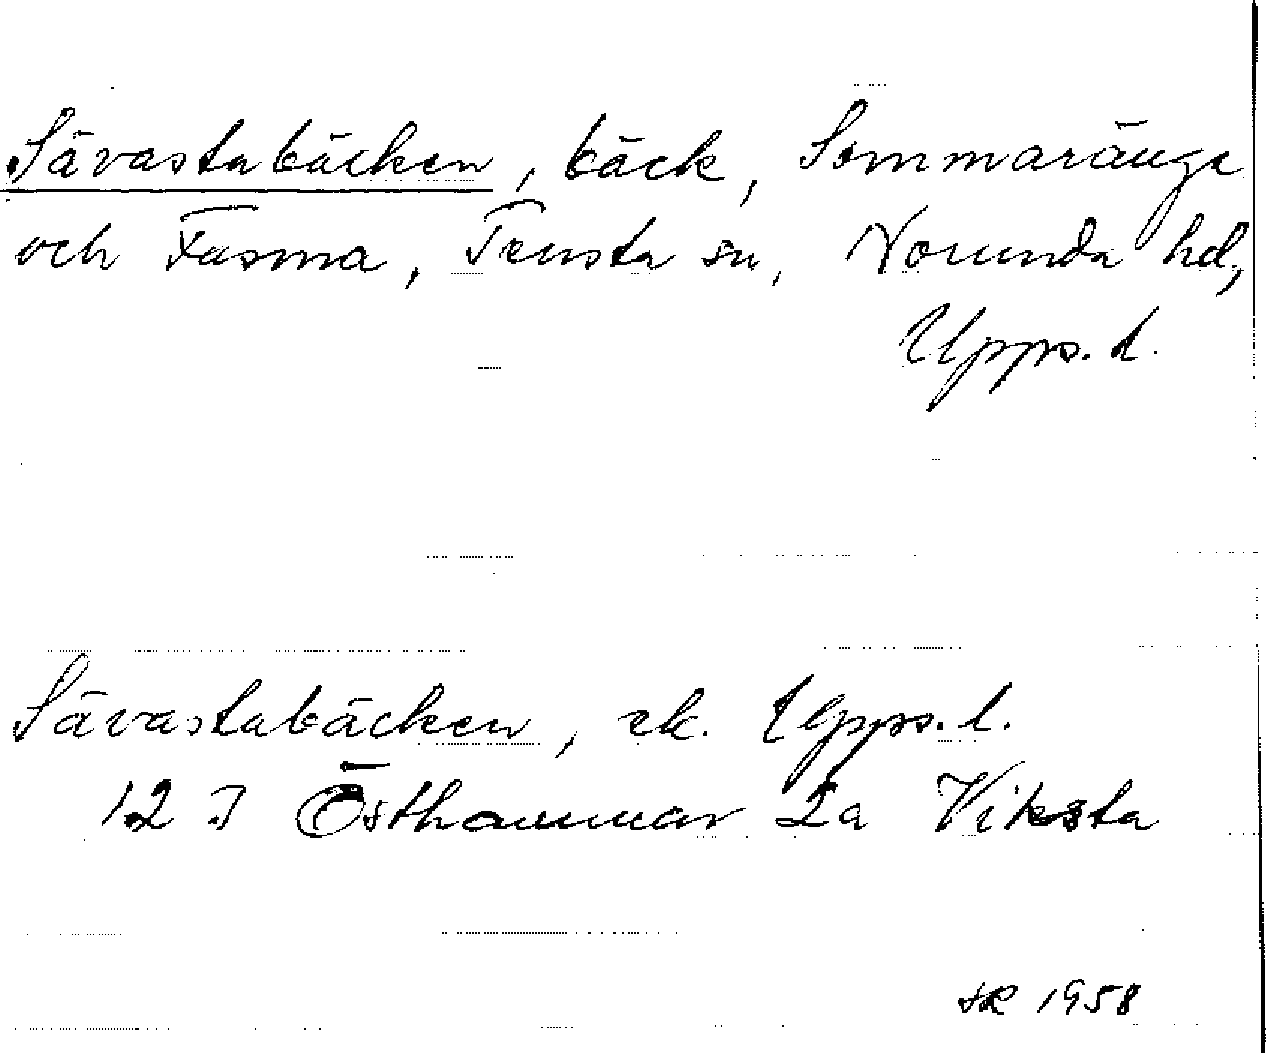 Sävastabäcken, bäck, Sommaränge
och Fasma, Tensta sn, Norunda hd,
Upps. l.
Sävastabäcken, ek. Upps. l.
12 I Östhammar 2a Viksta
SR 1958